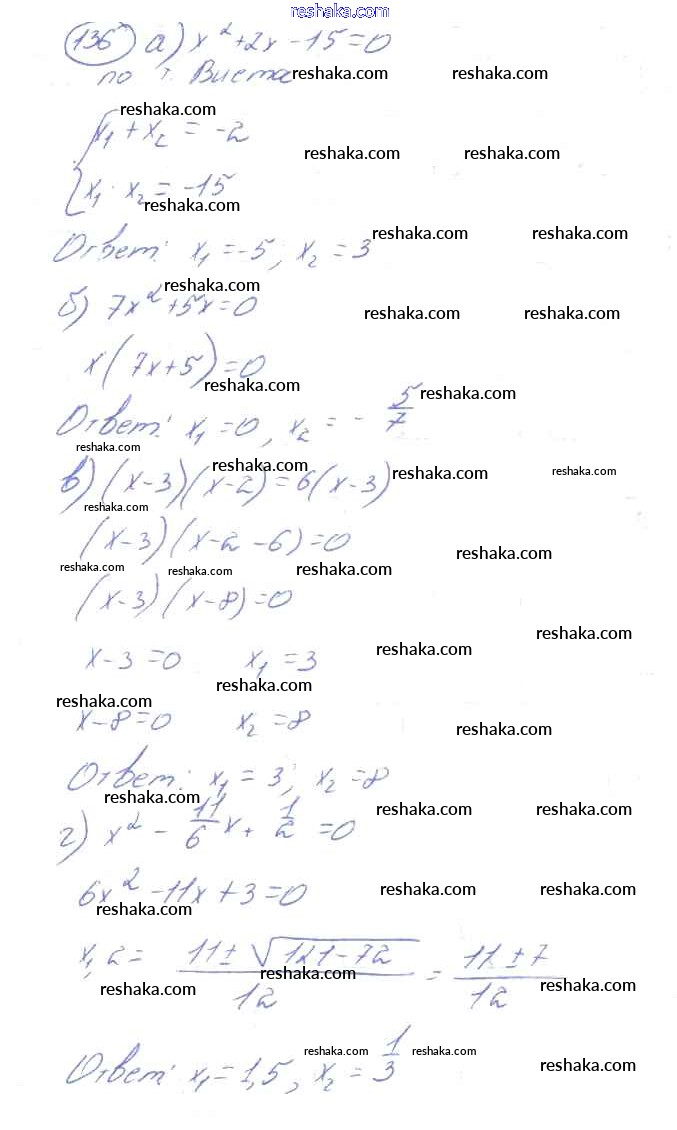 reshaka.com
136 а) x² + 2x - 15 = 0
по т. Виета reshaka.com reshaka.com
reshaka.com
x₁ + x₂ = -2
reshaka.com reshaka.com
x₁ · x₂ = -15
reshaka.com
reshaka.com reshaka.com
Ответ: x₁ = -5; x₂ = 3
reshaka.com
б) 7x² + 5x = 0
reshaka.com reshaka.com
x(7x+5) = 0
reshaka.com
reshaka.com
Ответ: x₁ = 0, x₂ = - 5/7
reshaka.com
reshaka.com reshaka.com reshaka.com
в) (x-3)(x-2) = 6(x-3)
reshaka.com
(x-3)(x-2-6) = 0
reshaka.com
reshaka.com reshaka.com reshaka.com
(x-3)(x-8) = 0
reshaka.com
reshaka.com
x-3 = 0 x₁ = 3
reshaka.com
reshaka.com
x-8 = 0 x₂ = 8
reshaka.com
Ответ: x₁ = 3; x₂ = 8
reshaka.com
reshaka.com reshaka.com
г) x² - 11/6 x + 1/2 = 0
6x² - 11x + 3 = 0
reshaka.com reshaka.com
reshaka.com
x₁,₂ = (11 ± √(121-72))/12 = (11 ± 7)/12
reshaka.com
reshaka.com reshaka.com
reshaka.com reshaka.com
Ответ: x₁ = 1,5, x₂ = 1/3
reshaka.com